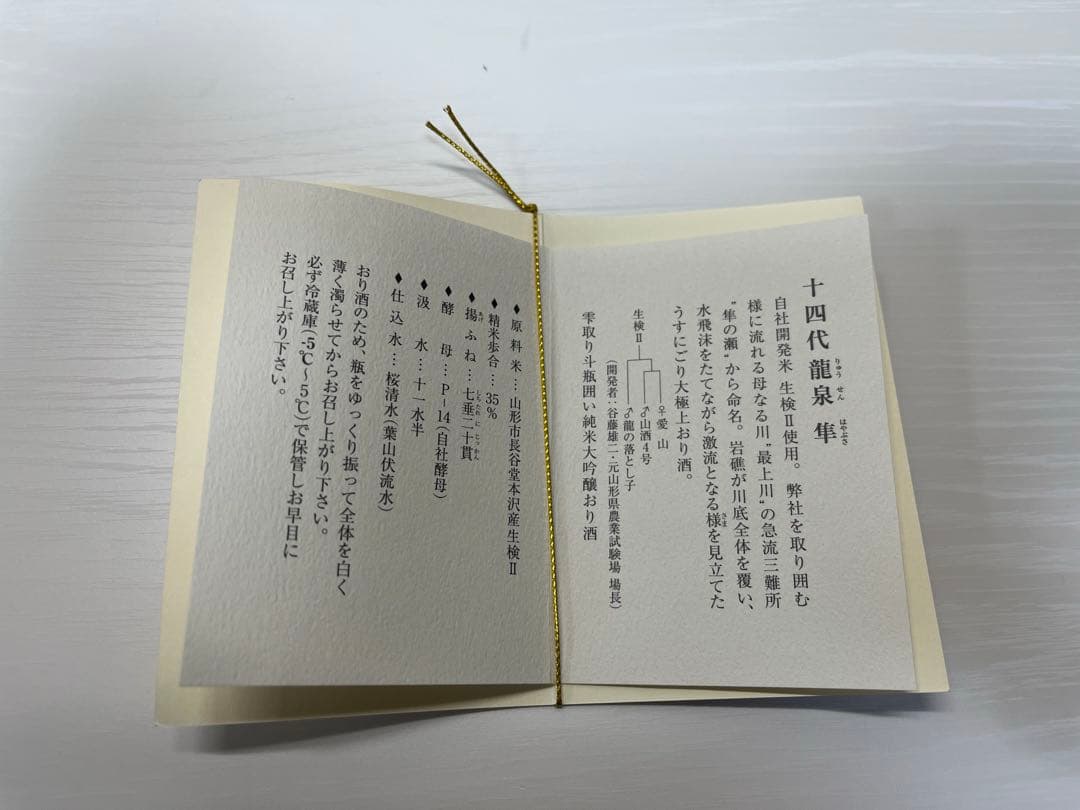 十四代龍泉 隼
りゅう せん はやぶさ
自社開発米 生検Ⅱ使用。弊社を取り囲む
様に流れる母なる川"最上川"の急流三難所
"隼の瀬"から命名。岩礁が川底全体を覆い、
水飛沫をたてながら激流となる様を見立てた
さま
うすにごり大極上おり酒。
生検Ⅱ
♀愛山
♂山酒4号
♂龍の落とし子
(開発者:谷藤雄二・元山形県農業試験場 場長)
雫取り斗瓶囲い純米大吟醸おり酒
♦原料米…山形市長谷堂本沢産生検Ⅱ
♦精米歩合…35%
♦揚ふね…七垂二十貫
あげ しちたれ に じっかん
♦酵母…P-14(自社酵母)
♦汲水…十一水半
♦仕込水…桜清水(葉山伏流水)
おり酒のため、瓶をゆっくり振って全体を白く
薄く濁らせてからお召し上がり下さい。
必ず冷蔵庫(-5℃~5℃)で保管しお早目に
お召し上がり下さい。